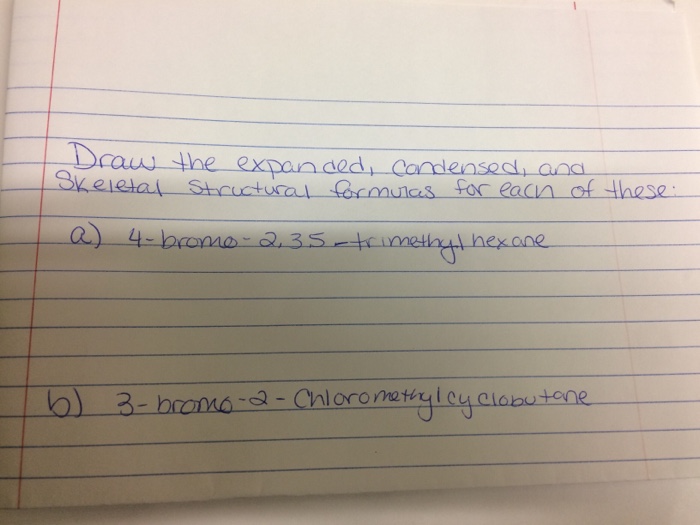 Draw the expanded, condensed, and
Skeletal Structural formulas for each of these:
a) 4-bromo-2,35-trimethylhexane
b) 3-bromo-2-Chloromethylcyclobutane